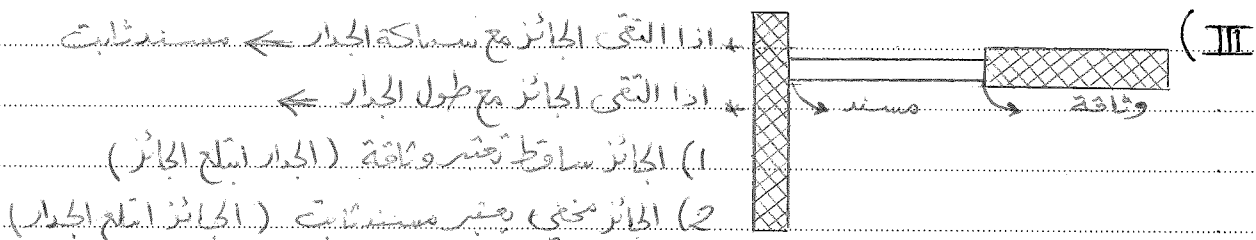 III)
* اذا التقى الجائز مع سماكة الجدار ⇐ مسند ثابت
* اذا التقى الجائز مع طول الجدار ⇐
1) الجائز ساقط تعتبر وثاقة (الجدار ابتلع الجائز)
2) الجائز مخفي يعتبر مسند ثابت (الجائز ابتلع الجدار)
مسند
وثاقة